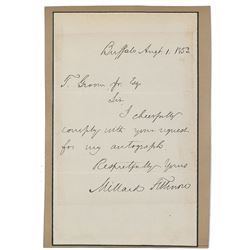 Buffalo Augt. 1. 1852
T. Groom Jr. Esq
Sir
I cheerfully
comply with your request
for my autograph.
Respectfully Yours
Millard Fillmore